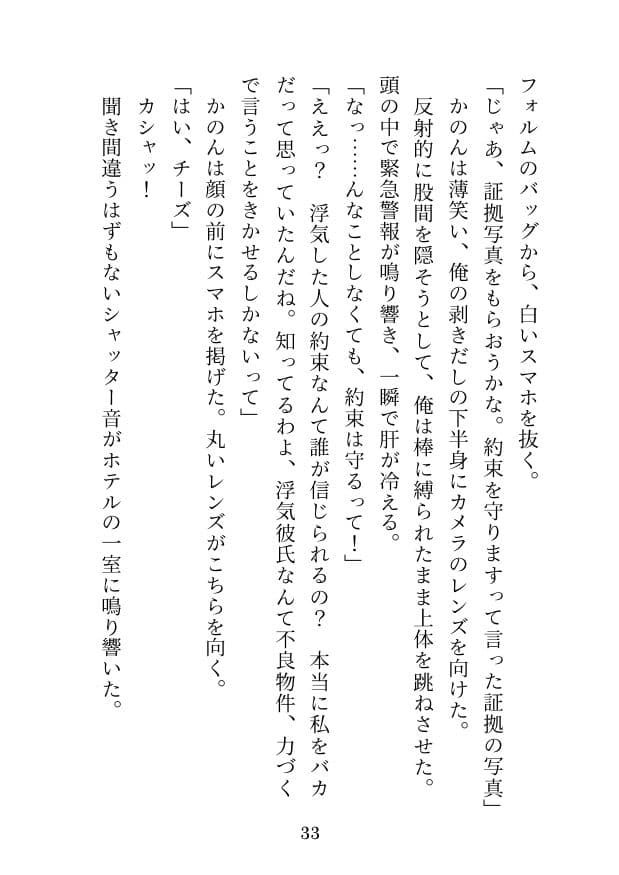 フォルムのバッグから、白いスマホを抜く。
「じゃあ、証拠写真をもらおうかな。約束を守りますって言った証拠の写真」
かのんは薄笑い、俺の剥きだしの下半身にカメラのレンズを向けた。
反射的に股間を隠そうとして、俺は棒に縛られたまま上体を跳ねさせた。
頭の中で緊急警報が鳴り響き、一瞬で肝が冷える。
「なっ……んなことしなくても、約束は守るって！」
「ええっ？　浮気した人の約束なんて誰が信じられるの？　本当に私をバカ
だって思っていたんだね。知ってるわよ、浮気彼氏なんて不良物件、力づく
で言うことをきかせるしかないって」
かのんは顔の前にスマホを掲げた。丸いレンズがこちらを向く。
「はい、チーズ」
カシャッ！
聞き間違うはずもないシャッター音がホテルの一室に鳴り響いた。
33